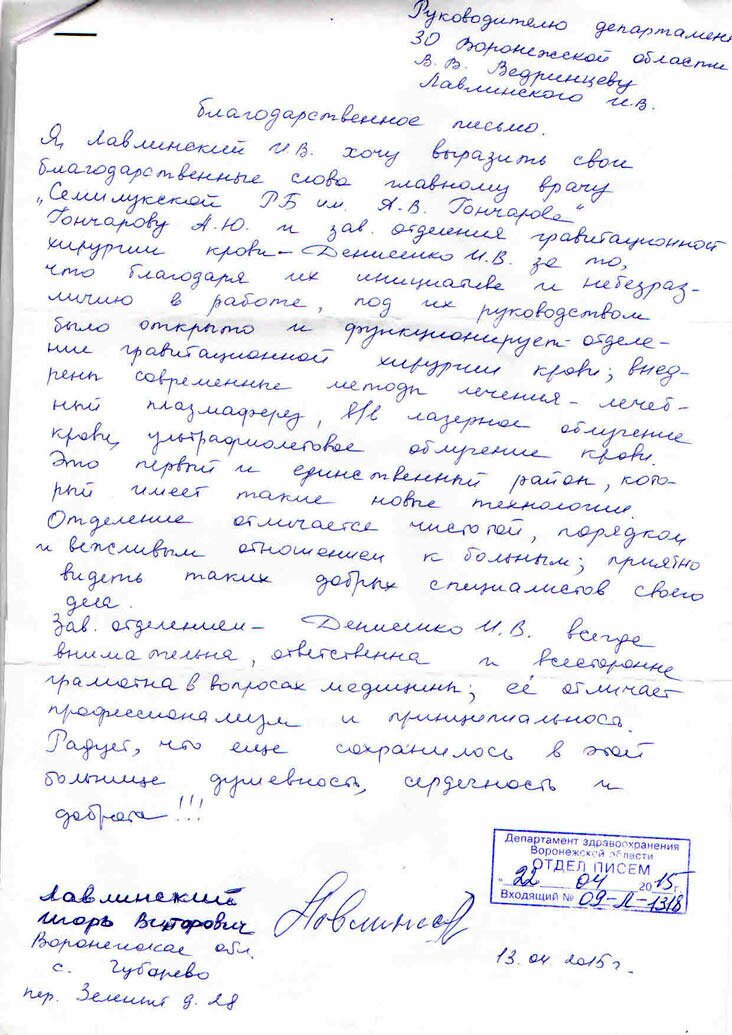 Руководителю департамен
ЗО Воронежской области
В.В. Ведринцеву
Лавлинского И.В.
благодарственное письмо.
Я, Лавлинский И.В. хочу выразить свои
благодарственные слова главному врачу
„Семилукской РБ им. А.В. Гончарова"
Гончарову А.Ю. и зав. отделения гравитационной
хирургии крови – Денисенко И.В. за то,
что благодаря их инициативе и небезраз-
личию в работе, под их руководством
было открыто и функционирует отделе-
ние гравитационной хирургии крови; внед-
рены современные методы лечения – лечеб-
ный плазмаферез, в/в лазерное облучение
крови, ультрафиолетовое облучение крови.
Это первый и единственный район, кото-
рый имеет такие новые технологии.
Отделение отличается чистотой, порядком
и вежливым отношением к больным; приятно
видеть таких добрых специалистов своего
дела.
Зав. отделением – Денисенко И.В. всегда
внимательна, ответственна и всесторонне
грамотна в вопросах медицины; её отличает
профессионализм и принципиальность.
Радует, что еще сохранилось в этой
больнице душевность, сердечность и
доброта!!!
Департамент здравоохранения
Воронежской области
ОТДЕЛ ПИСЕМ
"22 04 2015г.
Входящий № 09-Л-1318
Лавлинский
Игорь Викторович
Воронежская обл.
с. Губарево
пер. Зеленый д. 28
13.04.2015г.